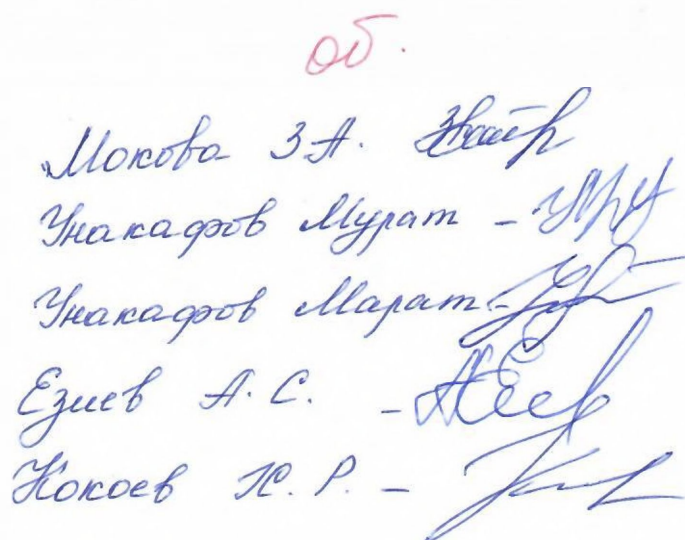 об.
Мокова З.А.
Унакафов Мурат -
Унакафов Марат -
Езиев А.С. -
Кокоев К.Р. -